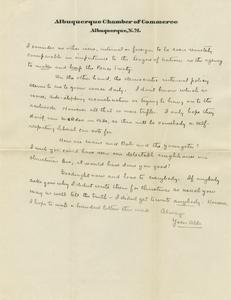 Albuquerque Chamber of Commerce
Albuquerque, N.M.
I consider no other issue, national or foreign to be even remotely
comparable in importance to the league of nations as the agency
to make and keep the Peace Treaty.
On the other hand, the democratic internal policy
seems to me to grow worse daily. I don't know which is
worse, side-stepping reconstruction or trying to hang on to the
railroads. However all that is mere trifles. I only hope they
don't in 1920, so there will be somebody a self-
respecting liberal can vote for.
How are and Bob and the youngster?
I wish you could have seen our delectable neighbors on
Christmas Eve, it would have done you good!
Goodnight now and love to everybody. If anybody
asks you why I didn't write them for Christmas as usual you
may as well tell the truth - I didn't get to write anybody. However
I hope to write a hundred letters this week.
Always
Your